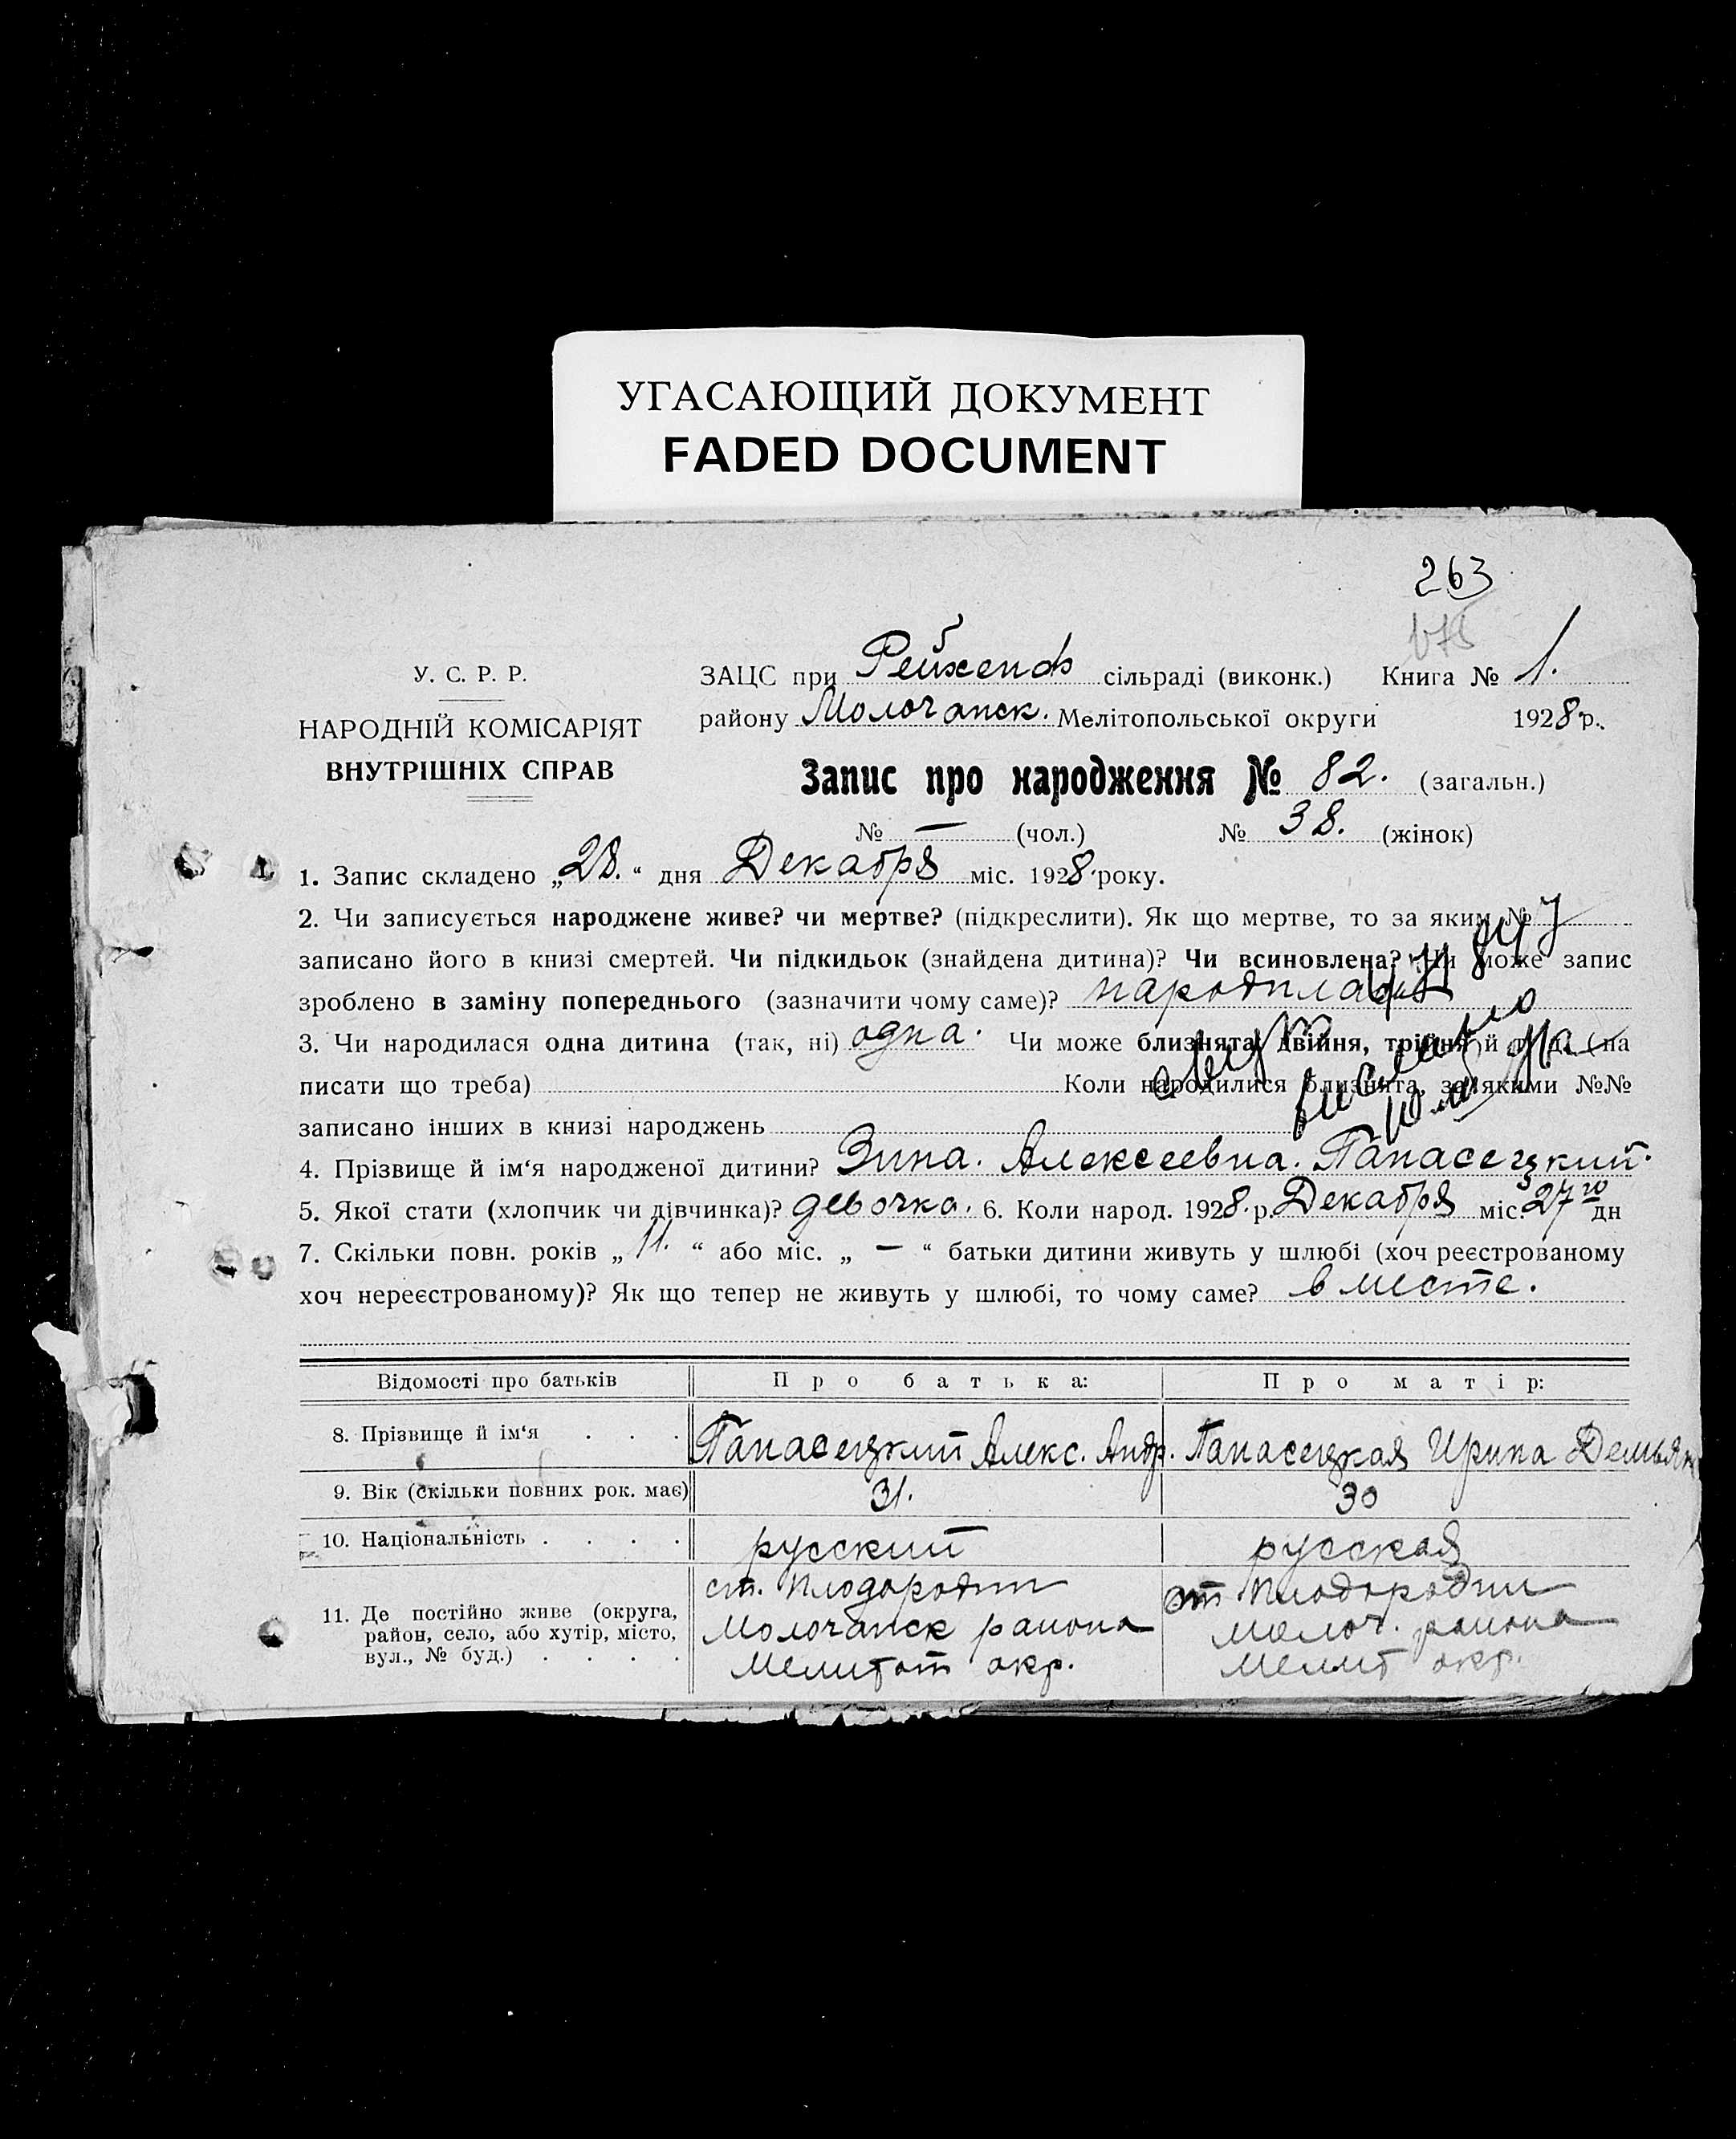 УГАСАЮЩИЙ ДОКУМЕНТ
FADED DOCUMENT
263
У. С. Р. Р.
НАРОДНІЙ КОМІСАРІЯТ
ВНУТРІШНІХ СПРАВ
ЗАЦС при Рейхенф сільраді (виконк.) Книга № 1.
району Молочанск. Мелітопольської округи 1928 р.
Запис про народження № 82. (загальн.)
№ — (чол.) № 38. (жінок)
1. Запис складено „28.“ дня Декабря міс. 1928 року.
2. Чи записується народжене живе? чи мертве? (підкреслити). Як що мертве, то за яким №
записано його в книзі смертей. Чи підкидьок (знайдена дитина)? Чи всиновлена? Чи може запис
зроблено в заміну попереднього (зазначити чому саме)?
3. Чи народилася одна дитина (так, ні) одна. Чи може близнята, двійня, трійня й т. д. (на
писати що треба) Коли народилися близнята, за якими №№
записано інших в книзі народжень
4. Прізвище й ім‘я народженої дитини? Зина. Алексеевна. Панасецкий.
5. Якої стати (хлопчик чи дівчинка)? девочка. 6. Коли народ. 1928. р. Декабря міс. 27го дн
7. Скільки повн. років „ 11. “ або міс. „ — “ батьки дитини живуть у шлюбі (хоч реєстрованому
хоч нереєстрованому)? Як що тепер не живуть у шлюбі, то чому саме? вместе.
Відомості про батьків Про батька: Про матір:
8. Прізвище й ім‘я . . . Панасецкий Алекс. Андр. Панасецкая Ирина Демьян
9. Вік (скільки повних рок. має) 31. 30
10. Національність . . . . русский русская
11. Де постійно живе (округа,
район, село, або хутір, місто,
вул., № буд.) . . . .
ст. Плодородии
Молочанск района
Мелитоп окр.
ст Плодородии
Молоч. района
Мелит окр.